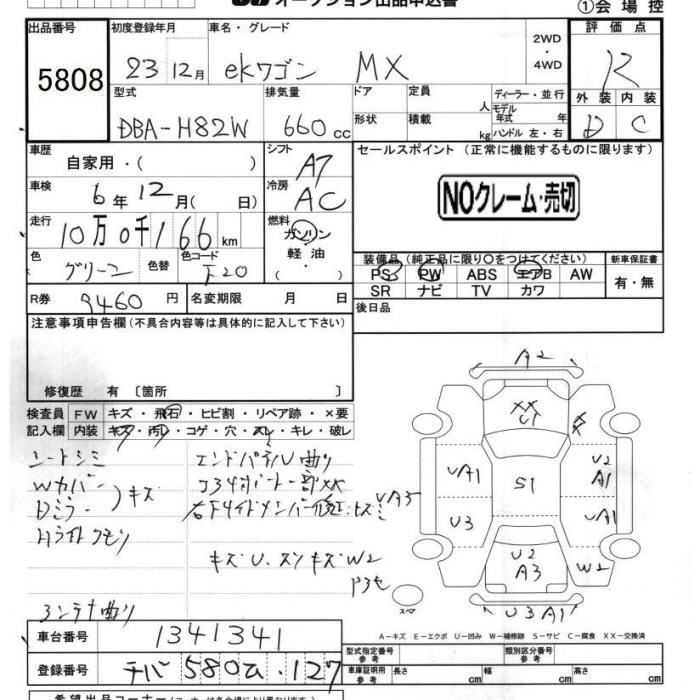 オークション出品申込書
①会場控
出品番号 初度登録年月 車名・グレード 2WD・4WD 評価点
5808 23 12月 ekワゴン MX R
型式 排気量 ドア 定員 人 ディーラー・並行 外装 内装
DBA-H82W 660cc 形状 積載 kg モデル年式 年 ハンドル 左・右 D C
車歴 自家用・( ) シフト A7 セールスポイント (正常に機能するものに限ります)
車検 6年12月( 日) 冷房 AC NOクレーム・売切
走行 10万0千166km 燃料 ガソリン・軽油・( )
色 グリーン 色替 色コード F20
装備品(純正品に限り〇をつけてください) 新車保証書
PS PW ABS エアB AW 有・無
SR ナビ TV カワ
R券 9460円 名変期限 月 日 後日品
注意事項申告欄(不具合内容等は具体的に記入して下さい)
修復歴 有 〔箇所 〕
検査員 FW キズ・飛石・ヒビ割・リペア跡・×要
記入欄 内装 キズ・汚レ・コゲ・穴・スレ・キレ・破レ
シートシミ
Wカバー
Dミラー
キズ
Hライトクモリ
エンドパネル曲り
キズU.スリキズW2
コンテナ曲り
A2
XX
U1
UA1
U3
S1
U2
A1
UA1
UA3
W2
U2
A3
U3A1
スペア
A-キズ E-エクボ U-凹み W-補修跡 S-サビ C-腐食 XX-交換済
車台番号 1341341
登録番号 チバ 580 127
型式指定番号 参考 類別区分番号 参考
車庫証明用 参考 長さ cm 幅 cm 高さ cm
希望出品コーナー